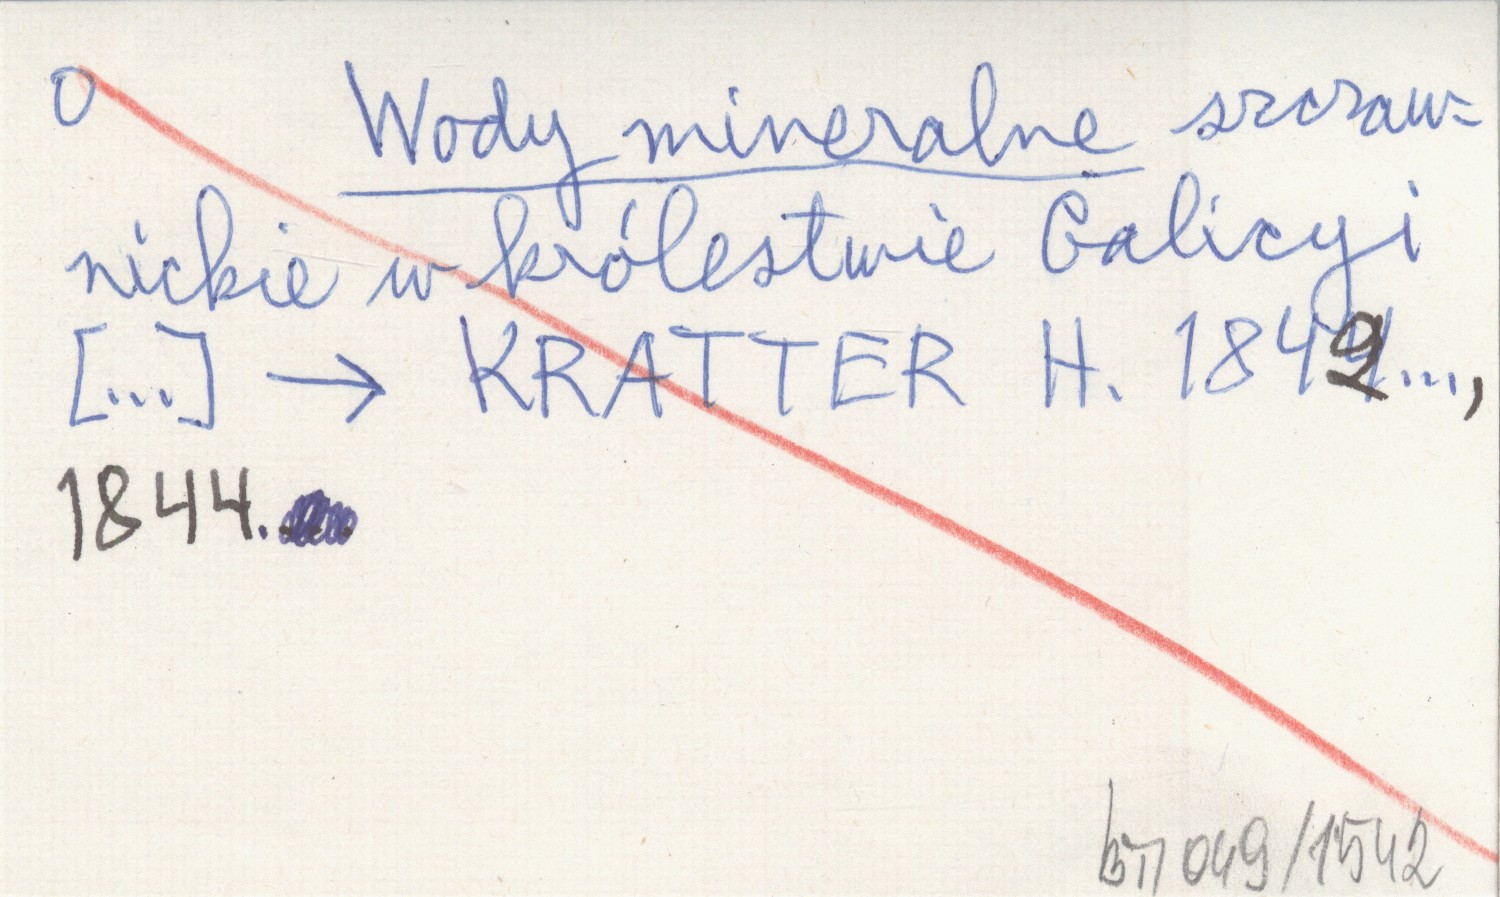 0 Wody mineralne szczaw=
nickie w królestwie Galicyi
[...] → KRATTER H. 1842...,
1844.
049/1542